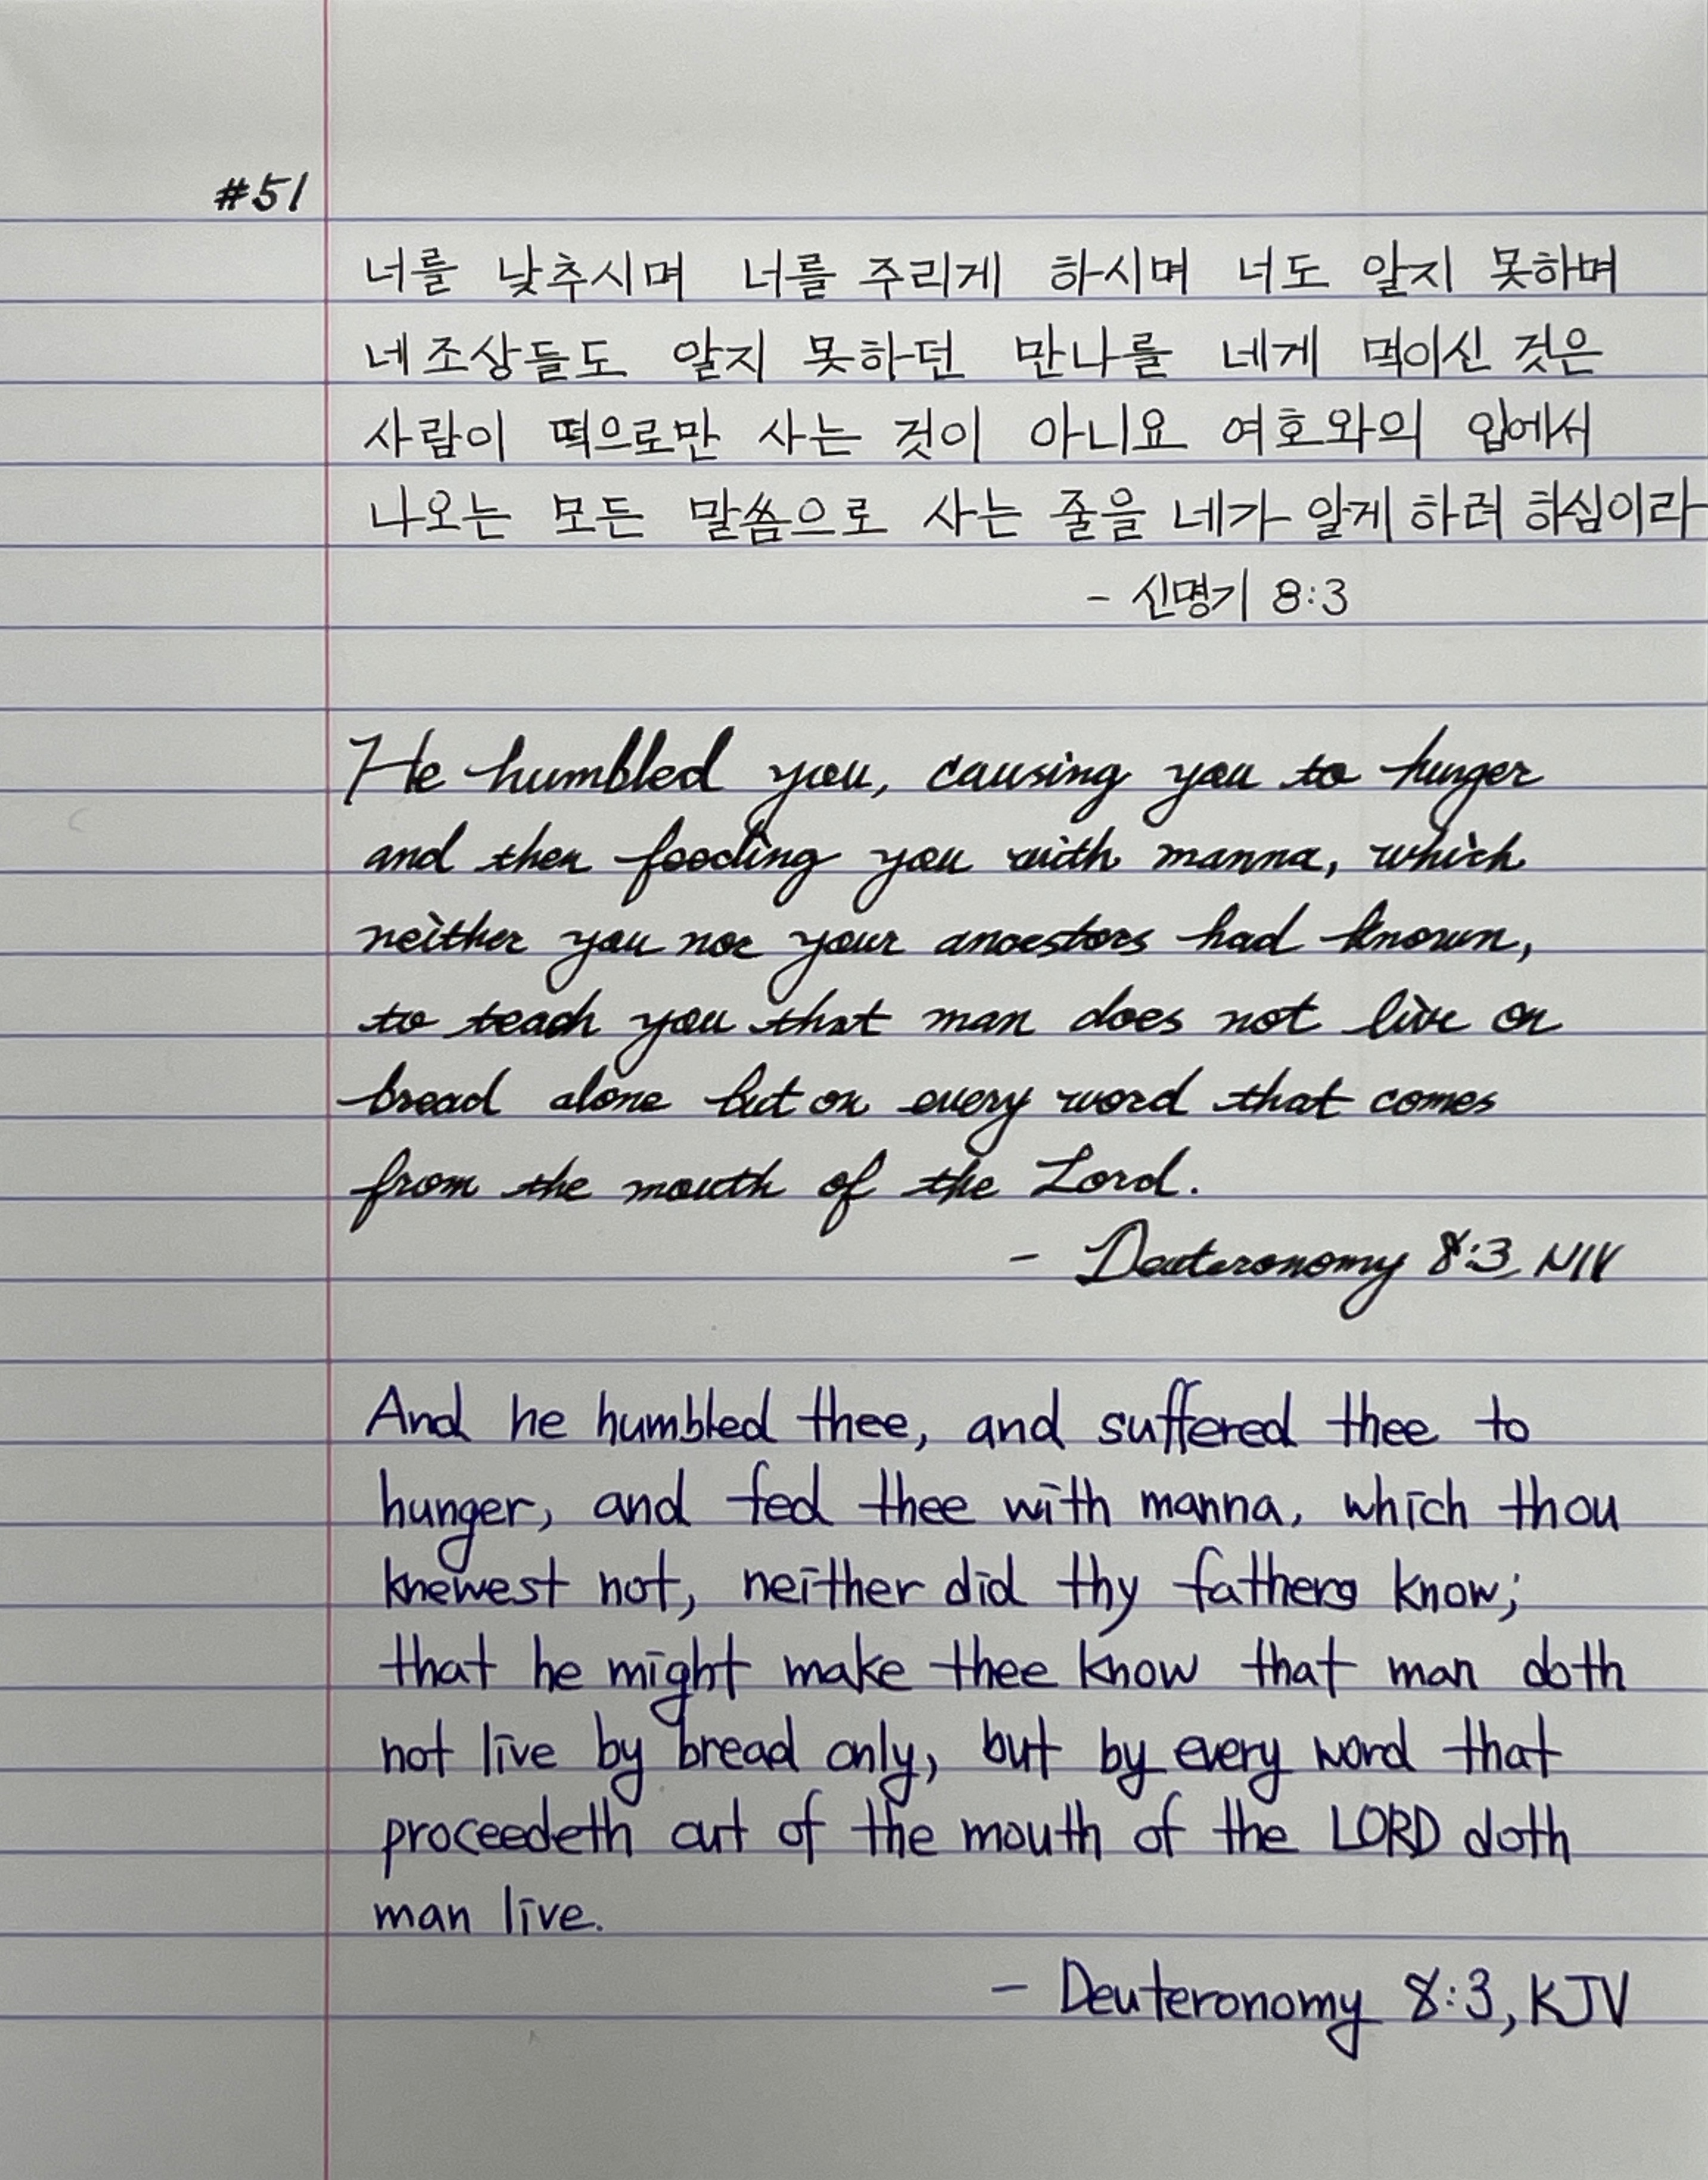 #51
너를 낮추시며 너를 주리게 하시며 너도 알지 못하며
네 조상들도 알지 못하던 만나를 네게 먹이신 것은
사람이 떡으로만 사는 것이 아니요 여호와의 입에서
나오는 모든 말씀으로 사는 줄을 네가 알게 하려 하심이라
- 신명기 8:3
He humbled you, causing you to hunger
and then feeding you with manna, which
neither you nor your ancestors had known,
to teach you that man does not live on
bread alone but on every word that comes
from the mouth of the Lord.
- Deuteronomy 8:3, NIV
And he humbled thee, and suffered thee to
hunger, and fed thee with manna, which thou
knewest not, neither did thy fathers know;
that he might make thee know that man doth
not live by bread only, but by every word that
proceedeth out of the mouth of the LORD doth
man live.
- Deuteronomy 8:3, KJV